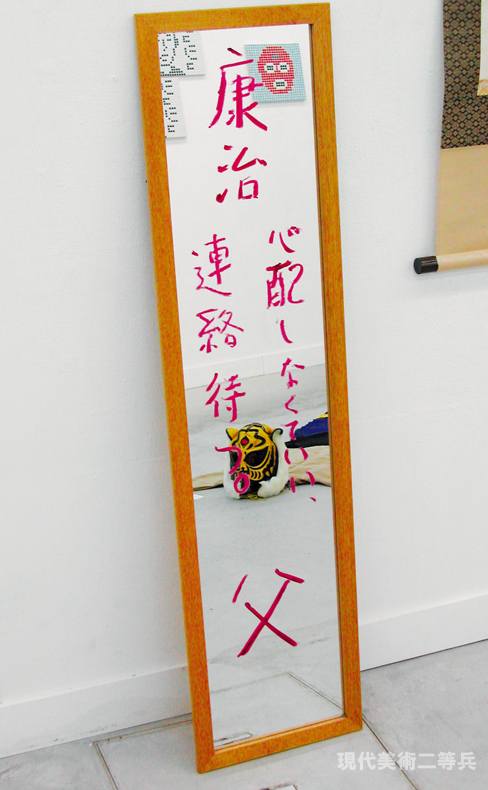 康治
心配しなくていい、
連絡待つ。
父
現代美術二等兵